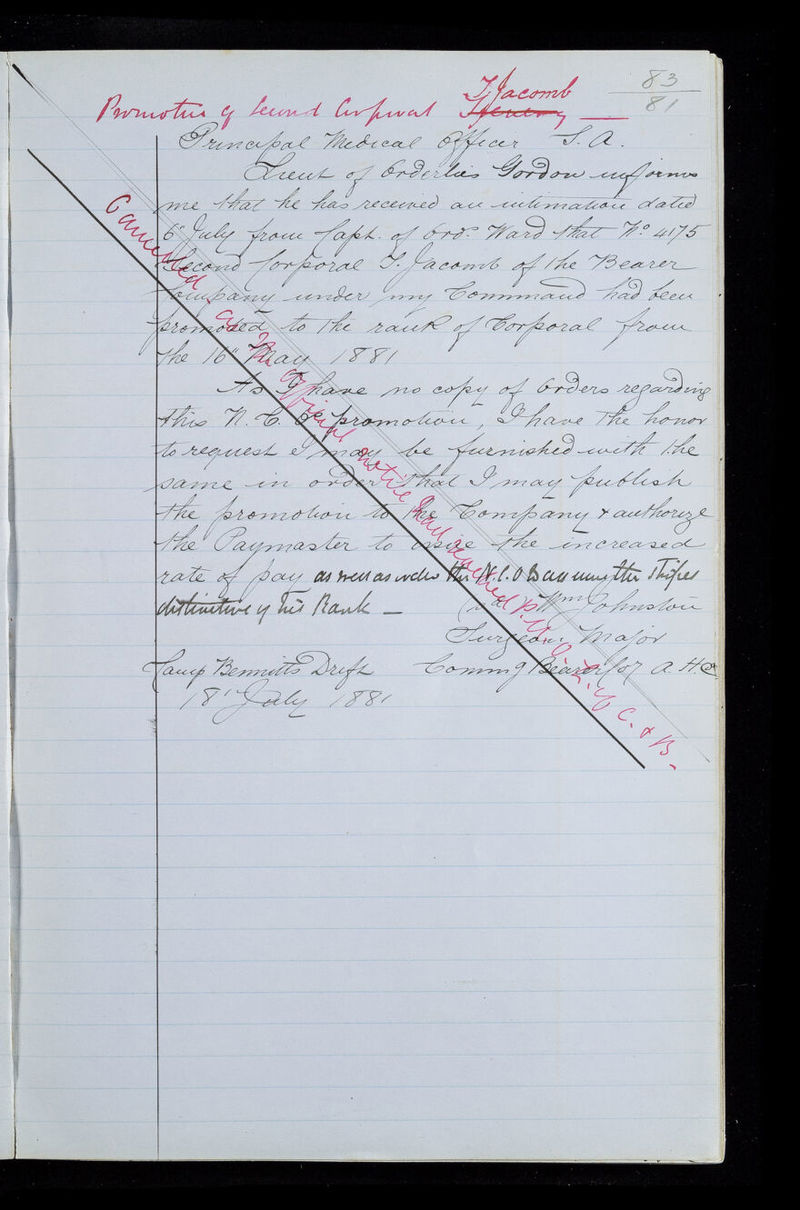 83
81
Promotion of Second Corporal T. Jacomb
Principal Medical Officer S. A.
Lieut of Orderlies Gordon informs
me that he has received an intimation dated
6" July from Capt. of Ords. Ward that No 4175
Second Corporal T. Jacomb of the Bearer
Company under my Command had been
promoted to the rank of Corporal from
the 16" May 1881
As I have no copy of Orders regarding
this N. C. O's promotion, I have the honor
to request I may be furnished with the
same in order that I may publish
the promotion to the Company & authorize
the Paymaster to issue the increased
rate of pay as well as order the N.C.O to assume the Stripes
distinctive of his Rank —
Wm Johnston
Surgeon Major
Camp Bennitts Drift Commg Bearer Coy A. H. C
18" July 1881
Cancelled as the official notice had reached of C. & B.